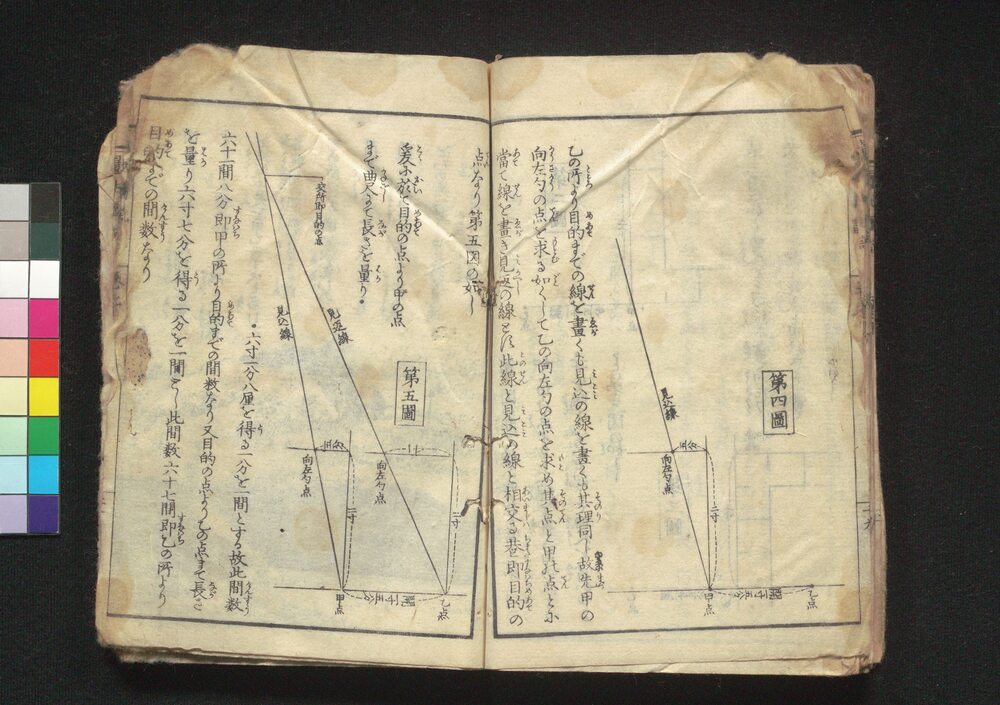 乙の所より目的までの線を畫くも見込の線を畫くも其理同し故先甲の
向左勾の点を求る如くして乙の向左勾の点を求め其点と甲乙点とに
當て線を畫き見返の線とす此線と見込の線と相交る巷即目的の
点なり第五図の如し
第四圖
見込線
向左勾点
二寸
甲点
乙点
爰に於て目的の点より甲の点
まで曲尺にて長さを量り・
交所即目的の点
見返線
見込線
第五圖
向左勾点
向左勾点
二寸
二寸
甲点
乙点
・六寸一分八厘を得る一分を一間とする故此間数
六十一間八分即甲の所より目的までの間数なり又目的の点より乙の点まて長さ
を量り六寸七分を得る一分を一間とし此間数六十七間即乙の所より
目的までの間数なり